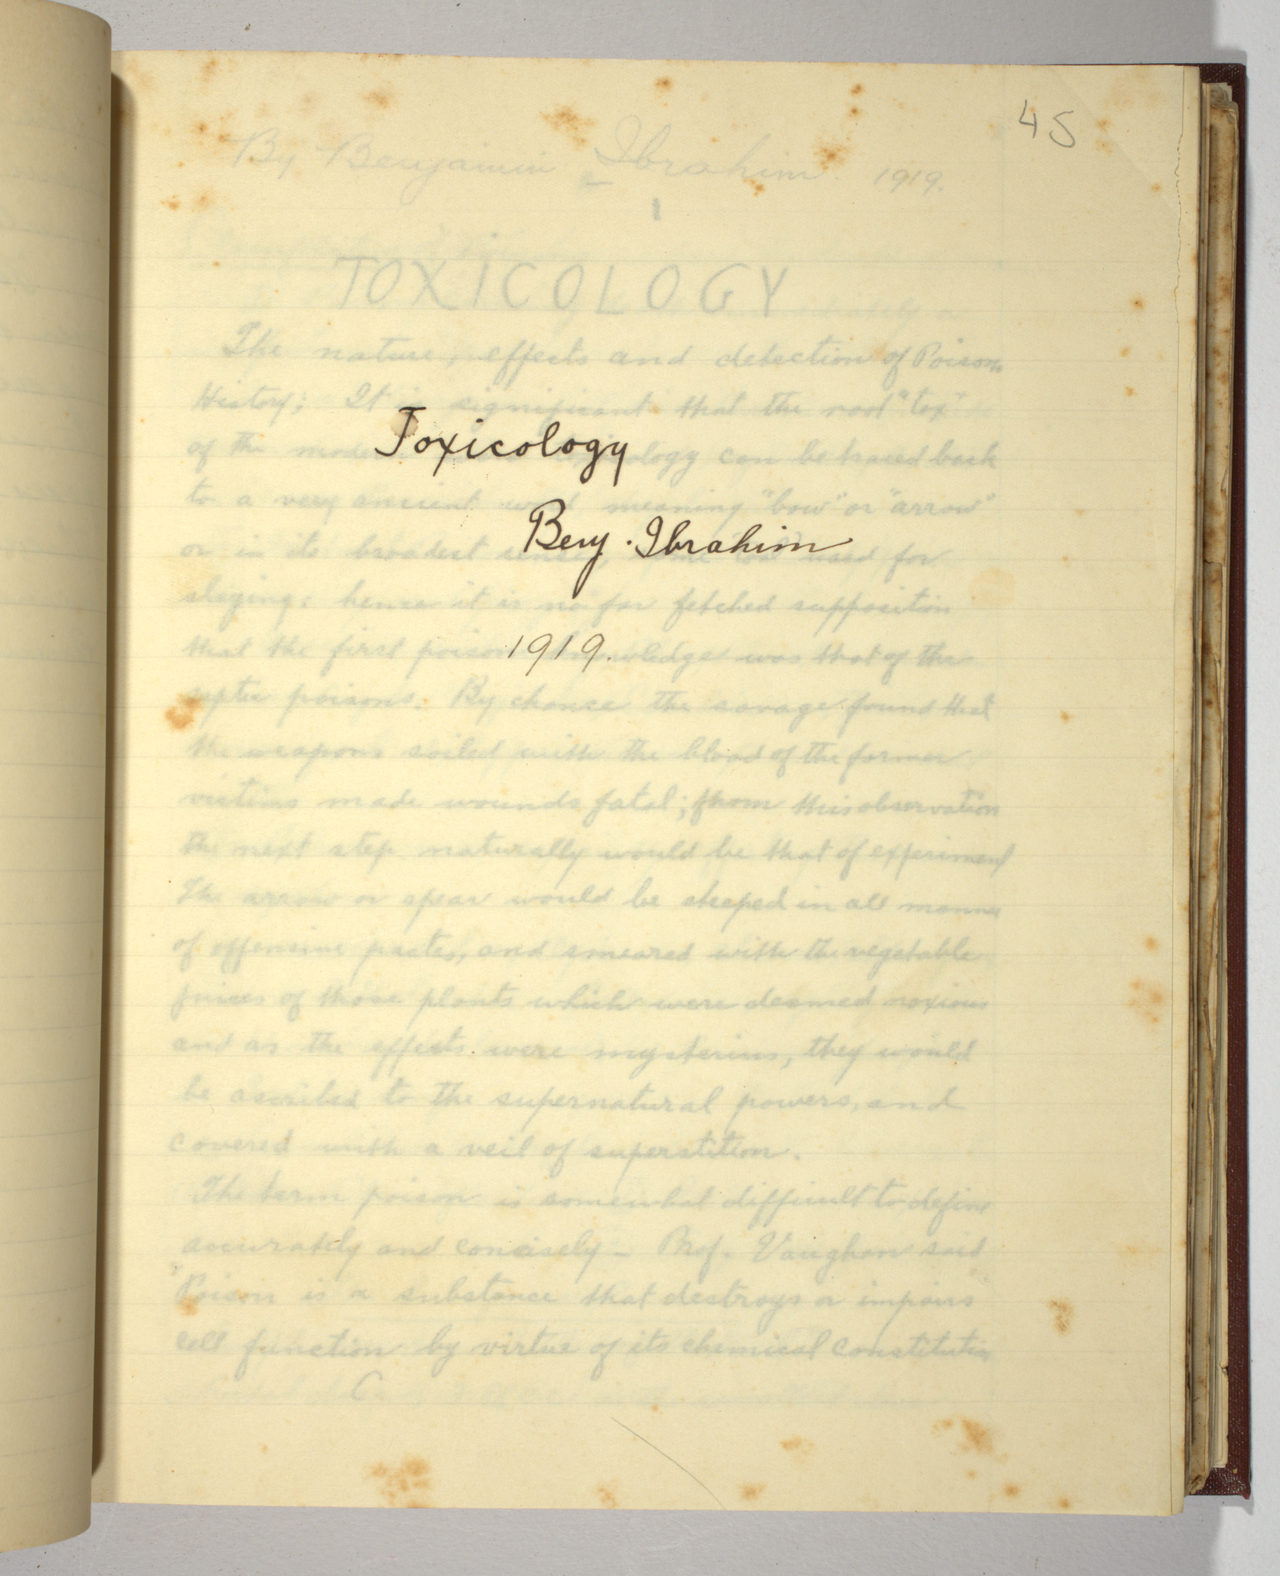 45
By Benjamin Ibrahim 1919.
1
TOXICOLOGY
The nature, effects and detection of Poisons
History: It is significant that the root "tox"
of the modern toxicology can be traced back
Toxicology
to a very ancient word meaning "bow" or "arrow"
Benj. Ibrahim
or in its broadest sense, some tool used for
slaying: hence it is no far fetched supposition
1919.
that the first poison knowledge was that of the
septic poisons. By chance the savage found that
the weapons soiled with the blood of the former
victims made wounds fatal; from this observation
the next step naturally would be that of experiment
The arrow or spear would be steeped in all manner
of offensive pastes, and smeared with the vegetable
juices of those plants which were deemed noxious
and as the effects were mysterius, they would
be ascribed to the supernatural powers, and
covered with a veil of superstition.
The term poison is somewhat difficult to define
accurately and concisely - Prof. Vaughan said
Poison is a substance that destroys or impairs
cell function by virtue of its chemical constitution